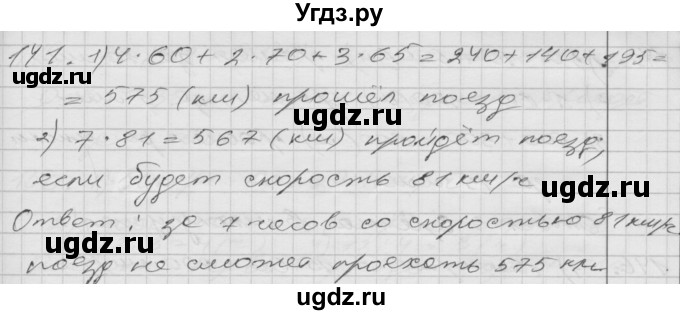 Угдз.ру
141. 1) 4·60 + 2·70 + 3·65 = 240 + 140 + 195 =
= 575 (км) прошёл поезд
2) 7·81 = 567 (км) пройдёт поезд,
если будет скорость 81 км/ч
Ответ: за 7 часов со скоростью 81 км/ч
поезд не сможет проехать 575 км
ugdz.ru
ugdz.ru
ugdz.ru
ugdz.ru
ugdz.ru
ugdz.ru
ugdz.ru
ugdz.ru